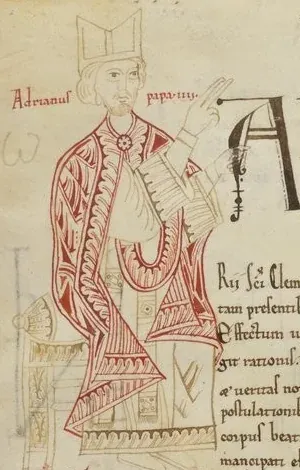 Adrianus papa·iiii·
A
Rii sc̄i Clem
tam presentib
Effectum u
git rationis.
æ ueritas no
postulationib
corpus beat
mancipati et